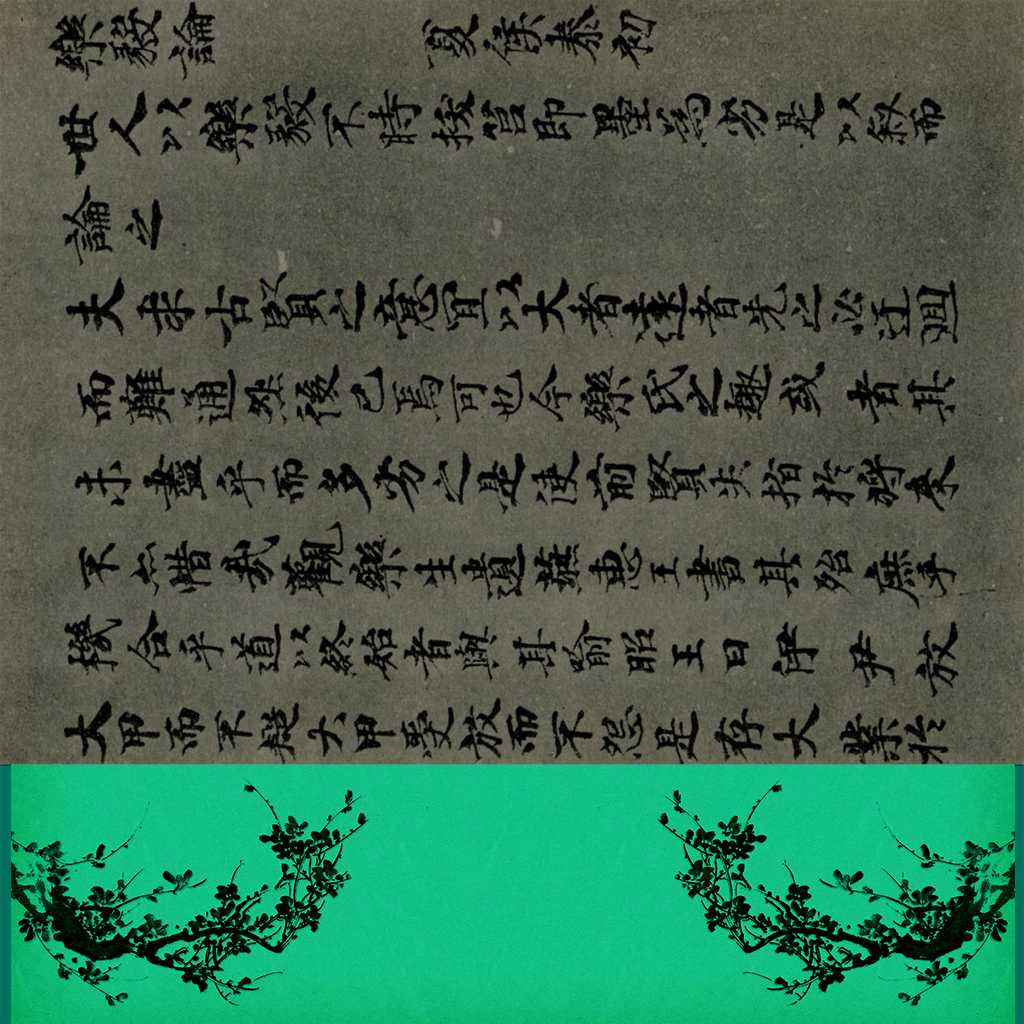 樂毅論 夏侯泰初
世人以樂毅不時拔莒即墨為劣是以敘而
論之
夫求古賢之意宜以大者遠者先之必迂迴
而難通然後已焉可也今樂氏之趣或者其
未盡乎而多劣之是使前賢失指於將來
不亦惜哉觀樂生遺燕惠王書其殆庶乎
機合乎道以終始者與其喻昭王曰伊尹放
大甲而不疑大甲受放而不怨是存大業於